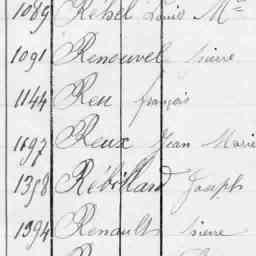 1089 Rébel Louis M
1091 Renouvel Pierre
1144 Reu françois
1697 Reux Jean Marie
1358 Rébillard Joseph
1394 Renault Pierre